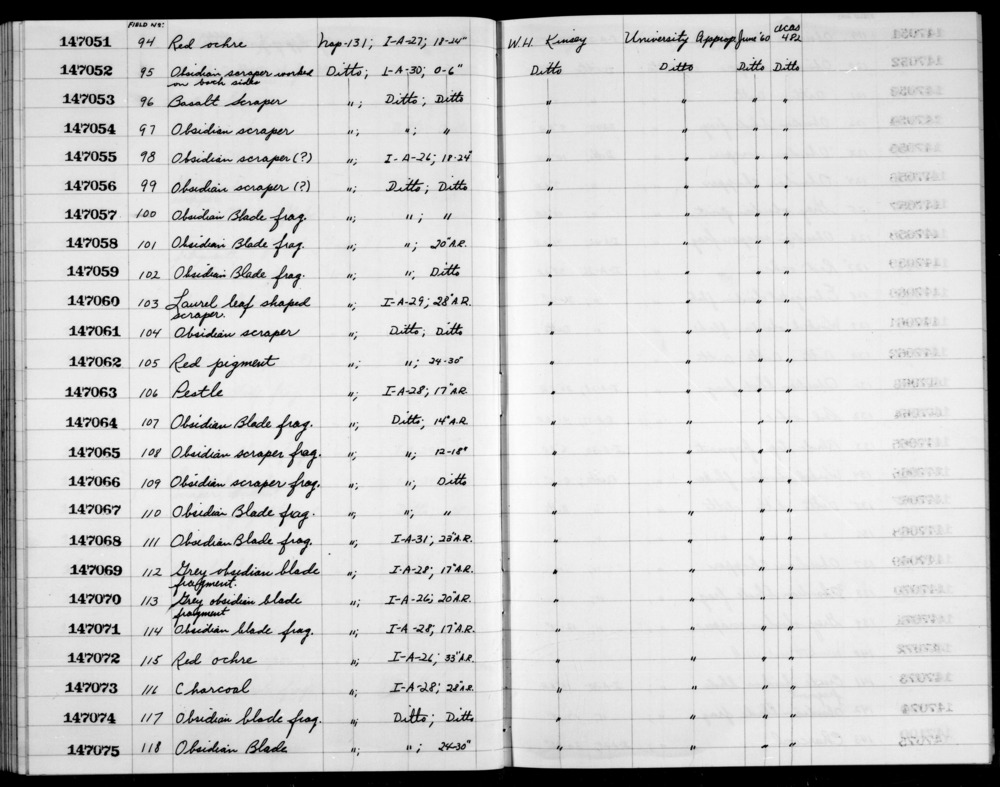 FIELD Nº:
147051 94 Red ochre Nap-131; I-A-27; 18-24" W.H. Kinsey University Approp. June '60 ucas 482
147052 95 Obsidian scraper worked on both sides Ditto; I-A-30; 0-6" Ditto Ditto Ditto Ditto
147053 96 Basalt Scraper "; Ditto; Ditto " " " "
147054 97 Obsidian scraper "; "; " " " " "
147055 98 Obsidian scraper (?) "; I-A-26; 18-24" " " " "
147056 99 Obsidian scraper (?) "; Ditto; Ditto " " " "
147057 100 Obsidian Blade frag. "; "; " " " " "
147058 101 Obsidian Blade frag. "; "; 20" A.R. " " " "
147059 102 Obsidian Blade frag. "; "; Ditto " " " "
147060 103 Laurel leaf shaped scraper. "; I-A-29; 28" A.R. " " " "
147061 104 Obsidian scraper "; Ditto; Ditto " " " "
147062 105 Red pigment "; "; 24-30" " " " "
147063 106 Pestle "; I-A-28; 17" A.R. " " " "
147064 107 Obsidian Blade frag. "; Ditto; 14" A.R. " " " "
147065 108 Obsidian scraper frag. "; "; 12-18" " " " "
147066 109 Obsidian scraper frag. "; "; Ditto " " " "
147067 110 Obsidian Blade frag. "; "; " " " " "
147068 111 Obsidian Blade frag. "; I-A-31; 23" A.R. " " " "
147069 112 Grey obsidian blade fragment. "; I-A-28; 17" A.R. " " " "
147070 113 Grey obsidian blade fragment "; I-A-26; 20" A.R. " " " "
147071 114 Obsidian blade frag. "; I-A-28; 17" A.R. " " " "
147072 115 Red ochre "; I-A-26; 33" A.R. " " " "
147073 116 Charcoal "; I-A-28; 28" A.R. " " " "
147074 117 Obsidian blade frag. "; Ditto; Ditto " " " "
147075 118 Obsidian Blade "; "; 24-30" " " " "